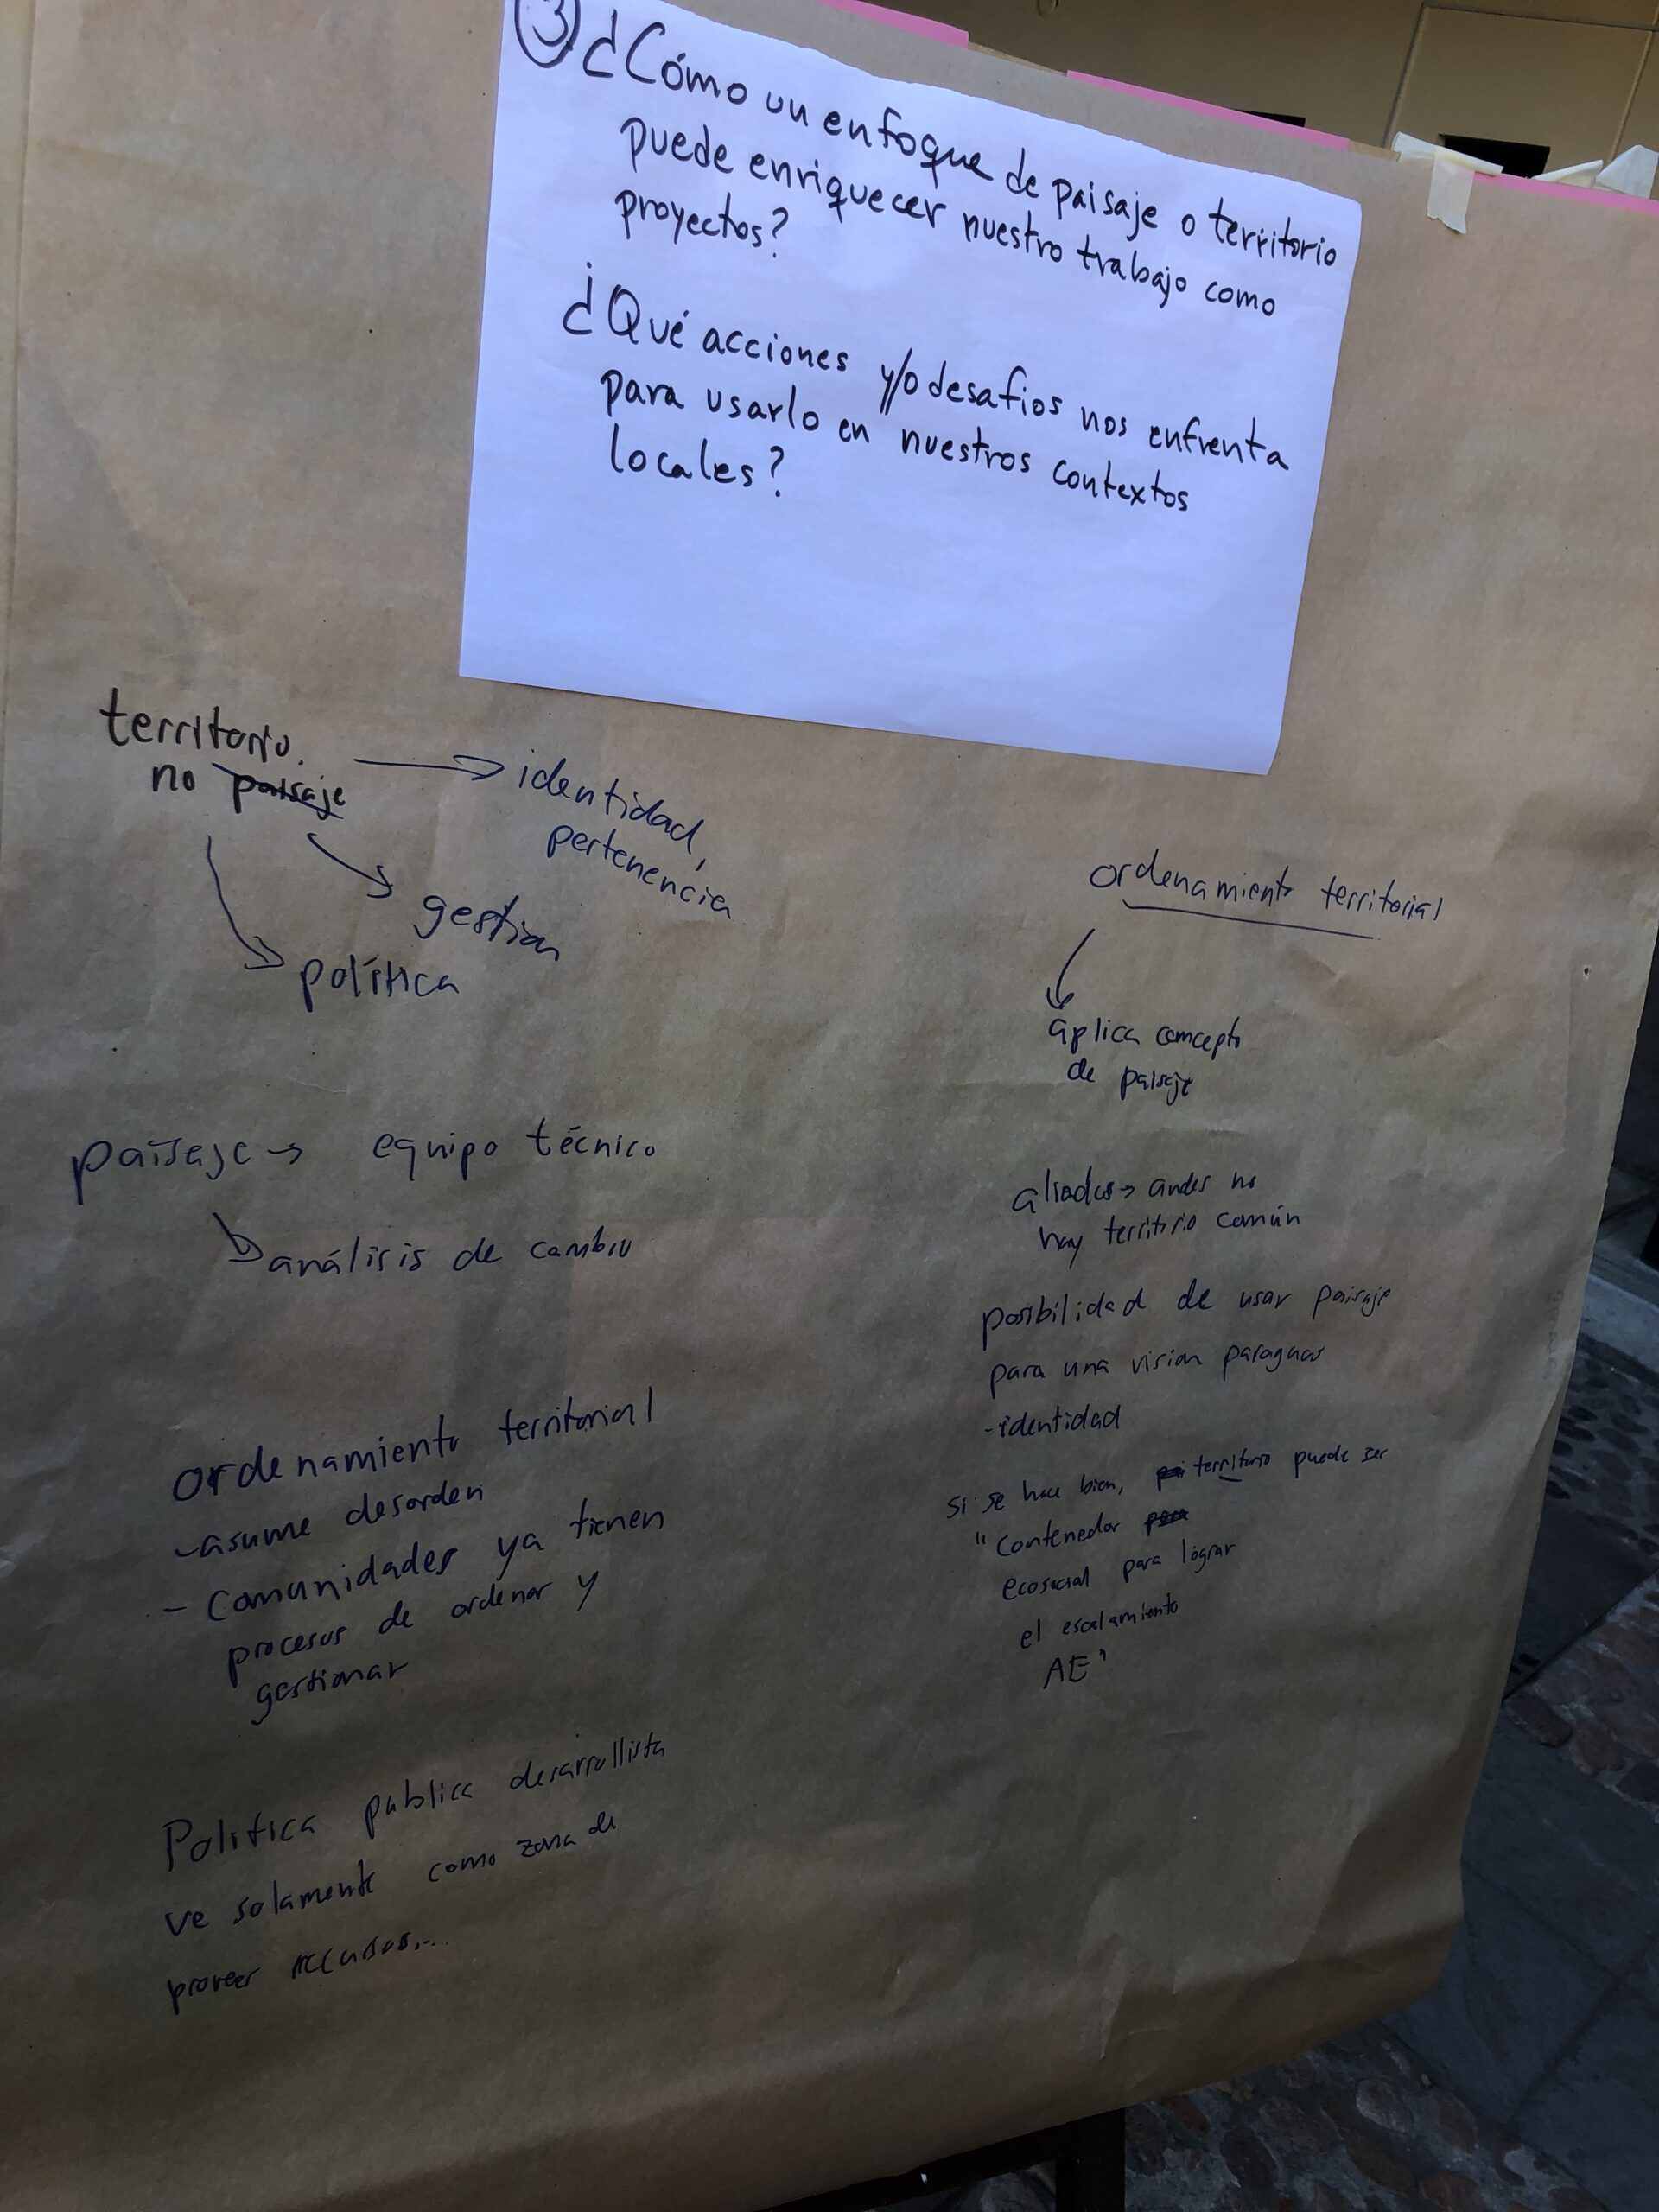 3 ¿Cómo un enfoque de paisaje o territorio
puede enriquecer nuestro trabajo como
proyectos?
¿Qué acciones y/o desafios nos enfrenta
para usarlo en nuestros contextos
locales?
territorio.
no paisaje
identidad,
pertenencia
gestion
política
paisaje → equipo técnico
análisis de cambio
ordenamiento territorial
- asume desorden
- Comunidades ya tienen
procesos de ordenar y
gestionar
Politica publica desarrollista
ve solamente como zona de
proveer recursos...
ordenamiento territorial
aplica concepto
de paisaje
aliados → andes no
hay territorio común
posibilidad de usar paisaje
para una vision paraguas
- identidad
Si se hace bien, territorio puede ser
"Contenedor
ecosocial para lograr
el escalamiento
AE"